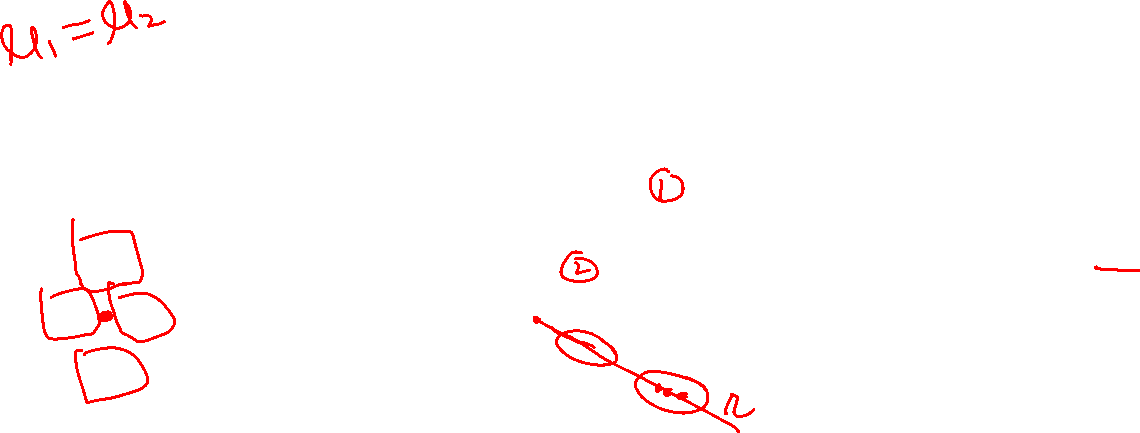 μ₁ = μ₂
①
②
r